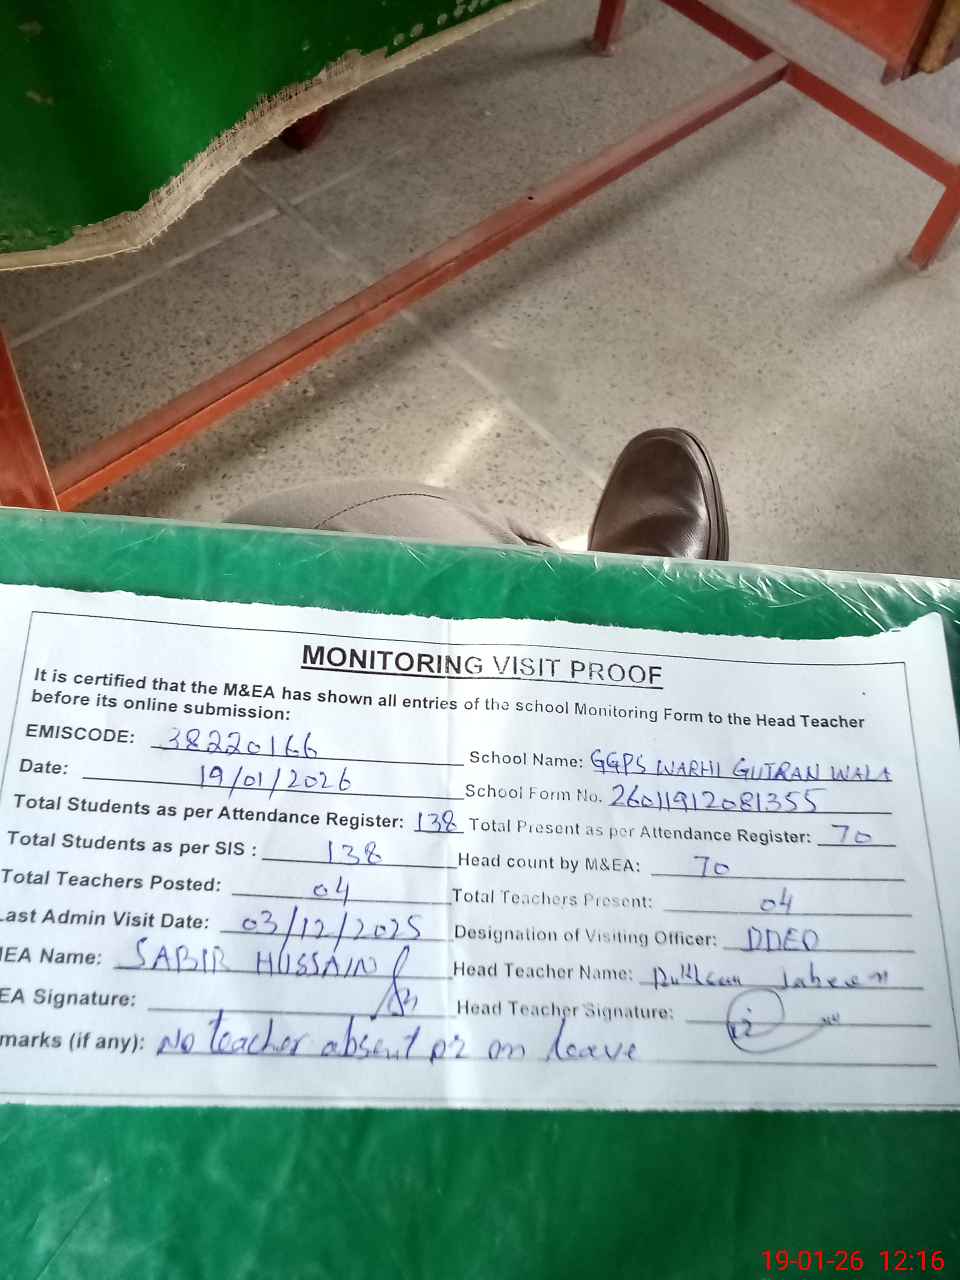 MONITORING VISIT PROOF
It is certified that the M&EA has shown all entries of the school Monitoring Form to the Head Teacher
before its online submission:
EMISCODE: 38220166 School Name: GGPS WARHI GUJRAN WALA
Date: 19/01/2026 School Form No. 26011912081355
Total Students as per Attendance Register: 138 Total Present as per Attendance Register: 70
Total Students as per SIS : 138 Head count by M&EA: 70
Total Teachers Posted: 04 Total Teachers Present: 04
Last Admin Visit Date: 03/12/2025 Designation of Visiting Officer: DDEO
MEA Name: SABIR HUSSAIN Head Teacher Name:
EA Signature: Head Teacher Signature:
marks (if any): No teacher absent or on leave
19-01-26 12:16